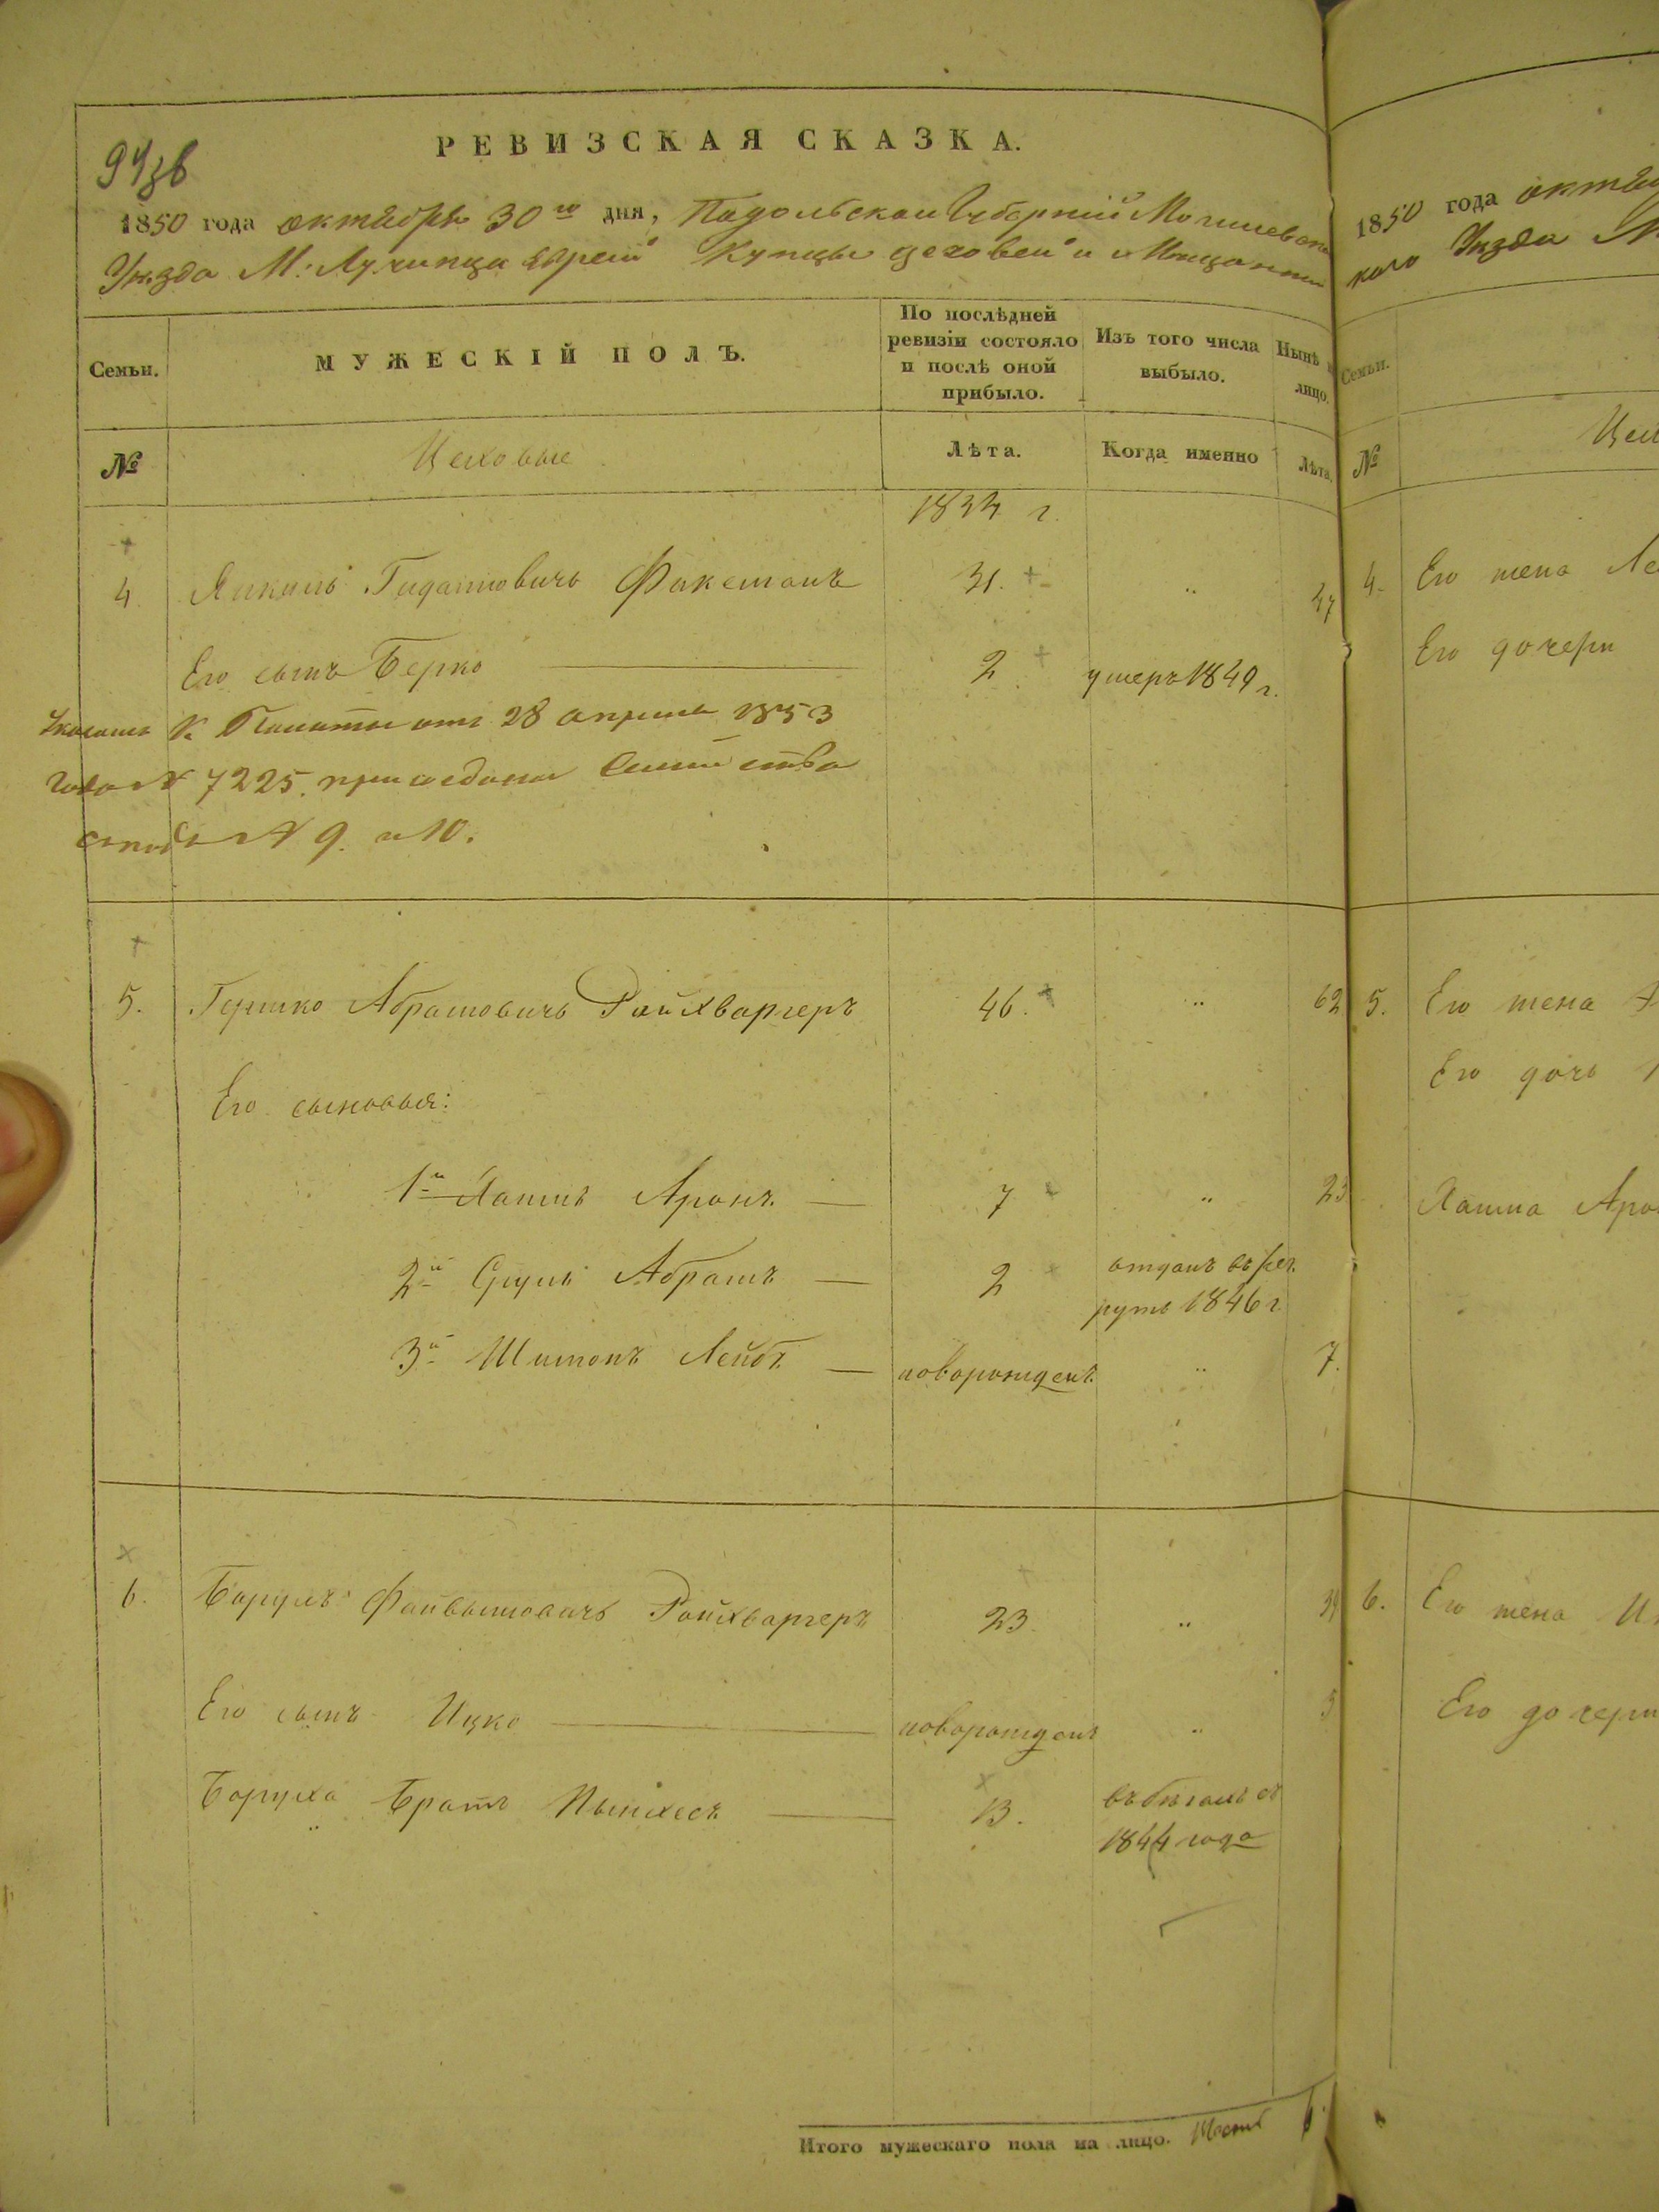 РЕВИЗСКАЯ СКАЗКА.
1850 года октября 30го дня, Подольской Губерніи Могилевска
Уѣзда М: Лучинца Еврей Купцы цеховеи и Мещанни
Семьи.
МУЖЕСКІЙ ПОЛЪ.
По послѣдней ревизіи состояло и послѣ оной прибыло.
Изъ того числа выбыло.
Нынѣ
лицо.
№
Цеховые
Лѣта.
Когда именно
Лѣта.
1834 г.
4. Янкель Фиксманъ 31. " 47
Его сынъ Берко 2 умеръ 1849 г.
К. Палаты отъ 28 апреля 1853
года № 7225.
№ 9. и 10.
5. Гершко Абрамовичъ Райхваргеръ 46. " 62
Его сыновья:
1й Хаимъ Аронъ 7 " 23
2й Сруль Абрамъ 2 отданъ въ рек
рутъ 1846 г.
3й Шимонъ Лейбъ новорожденъ " 7.
6. Борухъ Файвишовичъ Райхваргеръ 23. " 39
Его сынъ Ицко новорожденъ " 5
Боруха братъ Пинхесъ 13. въ бѣгахъ съ
1844 года
Итого мужескаго пола на лицо. 6.
1850 года октяб
каго Уѣзда М
Семьи.
№
Цех
4. Его жена Ле
Его дочери
5. Его жена
Его дочь
Хаима Арон
6. Его жена
Его дочери